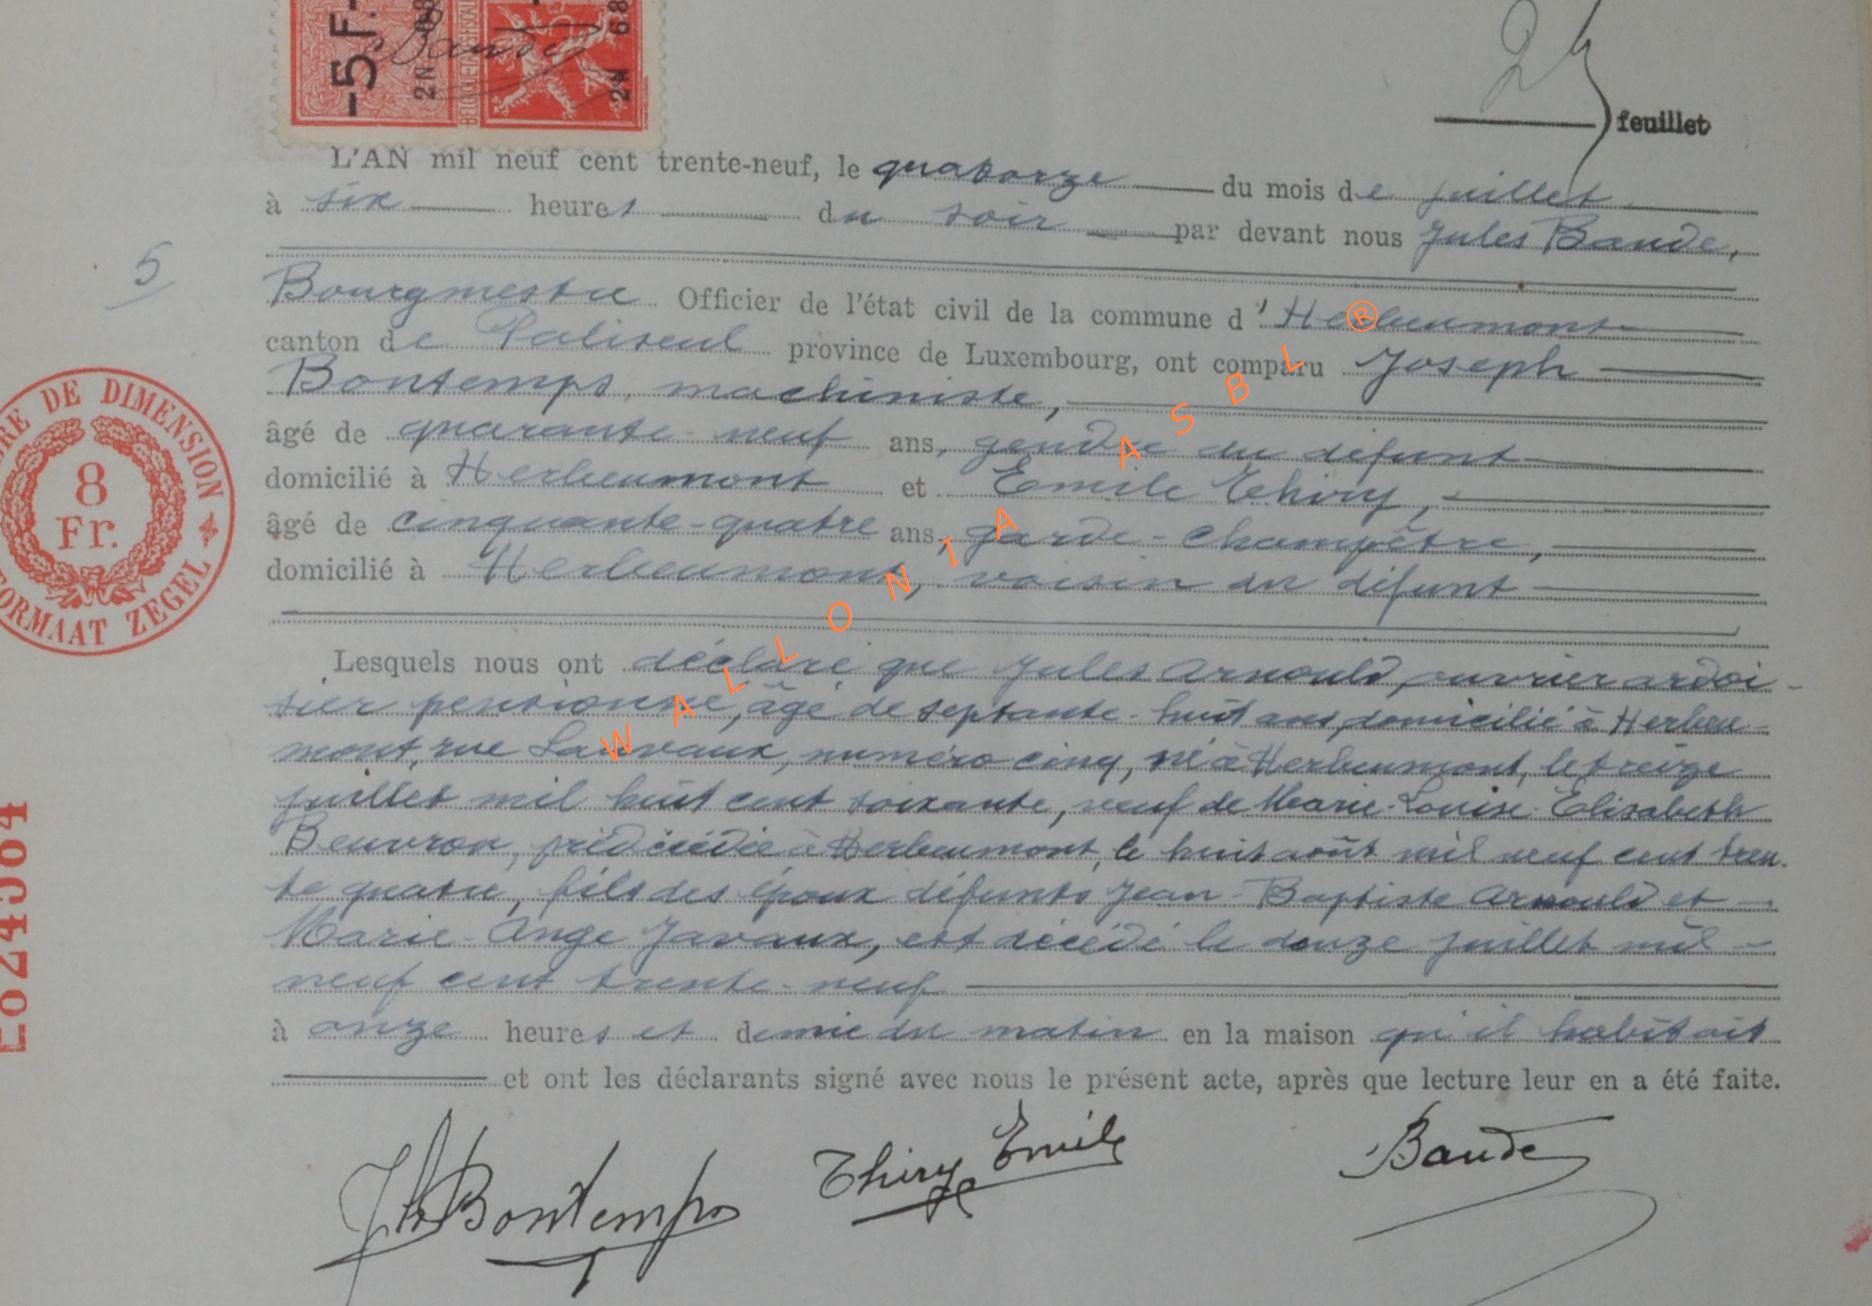 -5F.-
2N
68
BELGIQUE
2N
68
Baude
24 feuillet
L'AN mil neuf cent trente-neuf, le quatorze du mois de juillet
à six heures du soir par devant nous Jules Baude,
5
Bourgmestre Officier de l'état civil de la commune d'Herbeumont
canton de Paliseul province de Luxembourg, ont comparu Joseph
Bontemps, machiniste,
âgé de quarante-neuf ans, gendre du défunt
domicilié à Herbeumont et Emile Thiry,
âgé de cinquante-quatre ans, garde-champêtre,
domicilié à Herbeumont, voisin du défunt
Lesquels nous ont déclaré que Jules Arnould, ouvrier ardoi-
sier pensionné, âgé de septante-huit ans, domicilié à Herbeu-
mont, rue Lauvaux, numéro cinq, né à Herbeumont, le treize
juillet mil huit cent soixante, veuf de Marie-Louise-Elisabeth
Beuvron, prédécédée à Herbeumont, le huit août mil neuf cent tren-
te quatre, fils des époux défunts Jean-Baptiste Arnould et
Marie-Ange Javaux, est décédé le douze juillet mil
neuf cent trente-neuf
à onze heures et demie du matin en la maison qu'il habitait
et ont les déclarants signé avec nous le présent acte, après que lecture leur en a été faite.
Bontemps
Thiry Emile
Baude
DE DIMENSION
8
Fr.
FORMAAT ZEGEL
WALLONIA ASBL ®